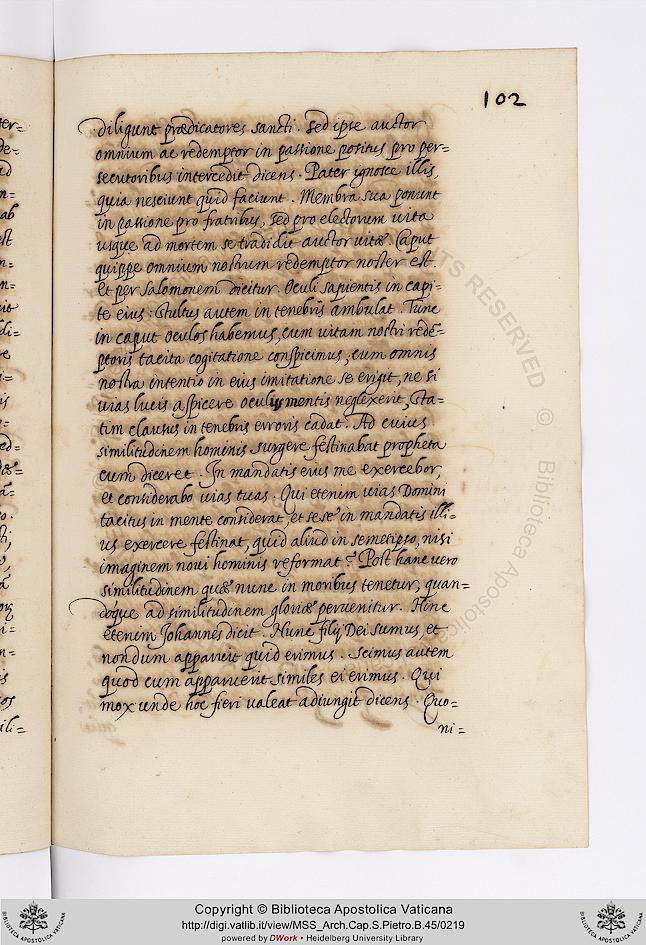 102
diligunt prædicatores sancti. Sed ipse auctor
omnium ac redemptor in passione positus pro per=
secutoribus intercedit dicens. Pater ignosce illis,
quia nesciunt quid faciunt. Membra sua ponunt
in passione pro fratribus, sed pro electorum vita
usque ad mortem se tradidit auctor vitæ. Caput
quippe omnium nostrum redemptor noster est.
Et per Salomonem dicitur. Oculi sapientis in capi=
te eius: Stultus autem in tenebris ambulat. Tunc
in caput oculos habemus, cum vitam nostri redē=
ptoris tacita cogitatione conspicimus, cum omnis
nostra intentio in eius imitatione se erigit, ne si
vias lucis aspicere oculis mentis neglexerit, sta=
tim clausus in tenebris erroris cadat. Ad cuius
similitudinem hominis surgere festinabat propheta
cum diceret. In mandatis eius me exercebor,
et considerabo vias tuas. Qui etenim vias Domini
tacitus in mente considerat, et sese in mandatis illi=
us exercere festinat, quid aliud in semetipso, nisi
imaginem novi hominis reformat? Post hanc vero
similitudinem quæ nunc in moribus tenetur, quan=
doque ad similitudinem gloriæ pervenitur. Hinc
etenim Johannes dicit. Nunc filij Dei sumus, et
nondum apparuit quid erimus. Scimus autem
quod cum apparuerit similes ei erimus. Qui
mox unde hoc fieri valeat adiungit dicens. Quo=
ni=
Copyright © Biblioteca Apostolica Vaticana
http://digi.vatlib.it/view/MSS_Arch.Cap.S.Pietro.B.45/0219
powered by DWork • Heidelberg University Library